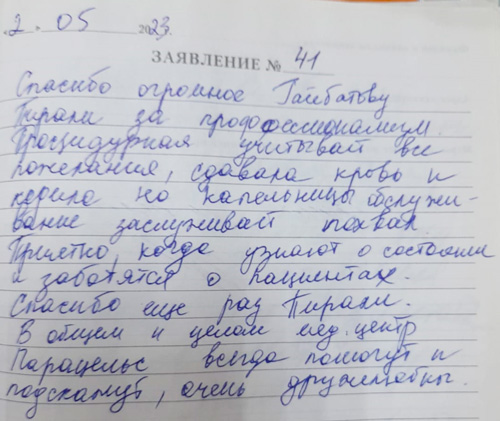 «2» 05 2023
ЗАЯВЛЕНИЕ № 41
Спасибо огромное Гайбатову
Пирали за профессионализм.
Процидурная учитывает все
пожелания, сдавала кровь и
ходила на капельницы обслужи-
вание заслуживает похвал.
Приятно, когда узнают о состоянии
и заботятся о пациентах.
Спасибо еще раз Пирали.
В общем и целом мед. центр
Парацельс всегда помогут и
подскажут, очень дружелюбны.